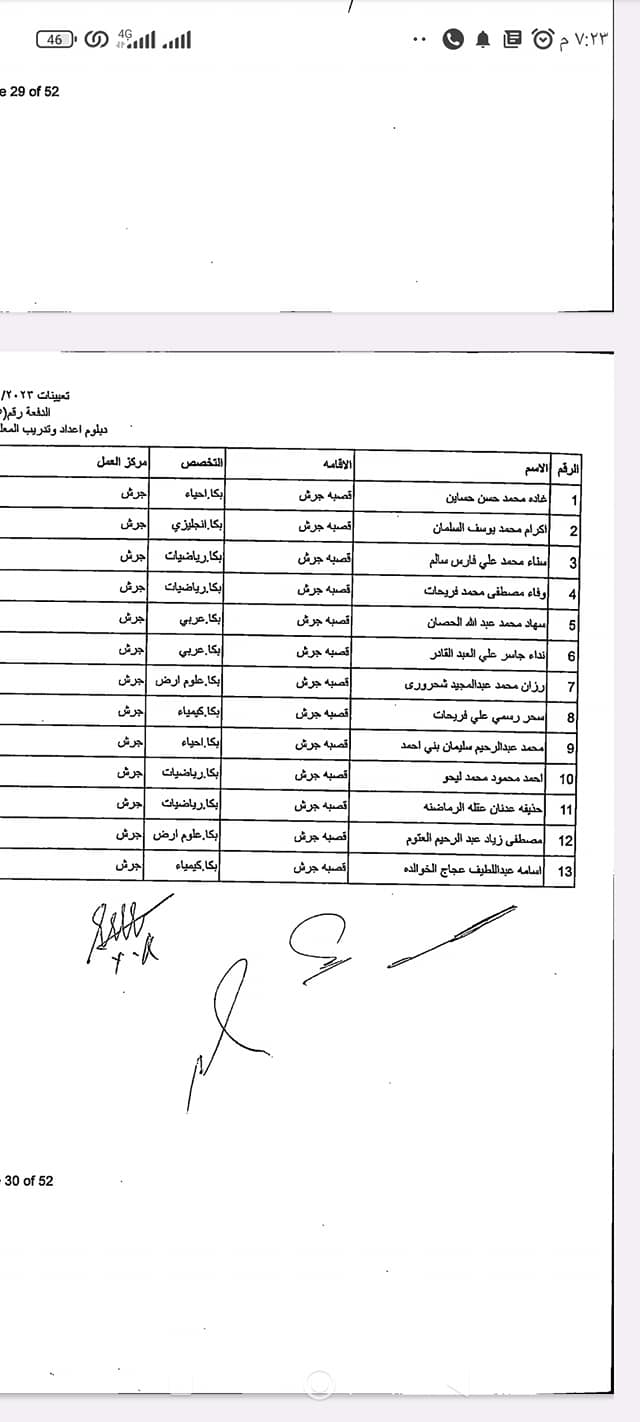 46 4G م ٧:٢٣
e 29 of 52
تعيينات ٢٠٢٣/
الدفعة رقم(
دبلوم اعداد وتدريب المعل
الرقم الاسم الاقامه التخصص مركز العمل
1 غاده محمد حسن حساين قصبه جرش بكا.احياء جرش
2 اكرام محمد يوسف السلمان قصبه جرش بكا.انجليزي جرش
3 سناء محمد علي فارس سالم قصبه جرش بكا.رياضيات جرش
4 وفاء مصطفى محمد فريحات قصبه جرش بكا.رياضيات جرش
5 سهاد محمد عبد الله الحصان قصبه جرش بكا.عربي جرش
6 نداء جاسر علي العبد القادر قصبه جرش بكا.عربي جرش
7 رزان محمد عبدالمجيد شحرورى قصبه جرش بكا.علوم ارض جرش
8 سحر رسمي علي فريحات قصبه جرش بكا.كيمياء جرش
9 محمد عبدالرحيم سليمان بني احمد قصبه جرش بكا.احياء جرش
10 احمد محمود محمد ليحو قصبه جرش بكا.رياضيات جرش
11 حذيفه عدنان عقله الرماضنه قصبه جرش بكا.رياضيات جرش
12 مصطفى زياد عبد الرحيم العتوم قصبه جرش بكا.علوم ارض جرش
13 اسامه عبداللطيف عجاج الخوالده قصبه جرش بكا.كيمياء جرش
30 of 52